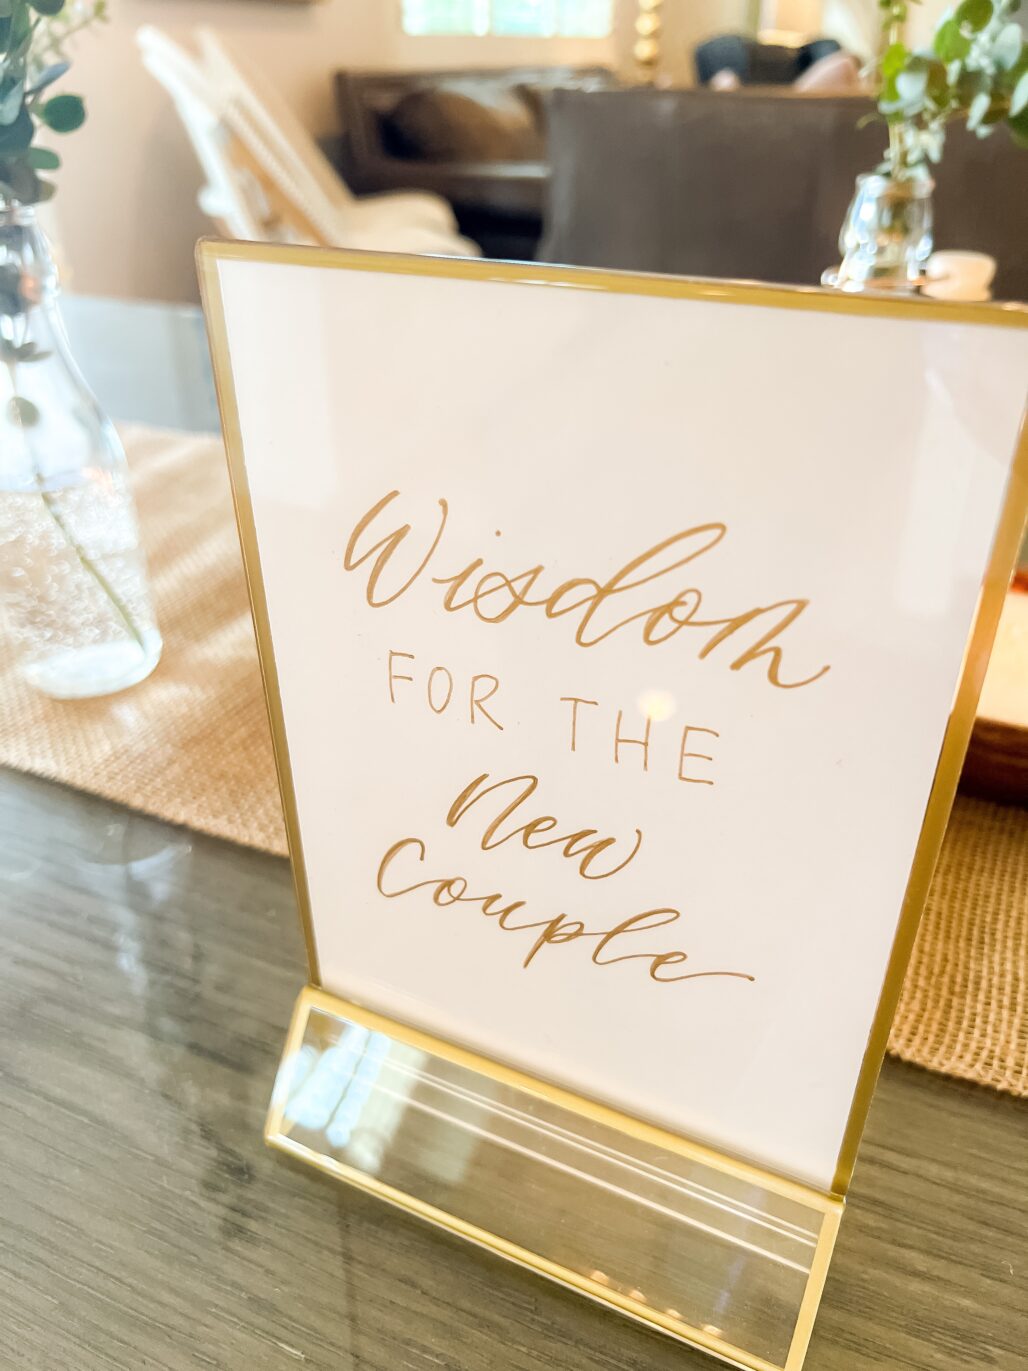 Wisdom
FOR THE
New
Couple